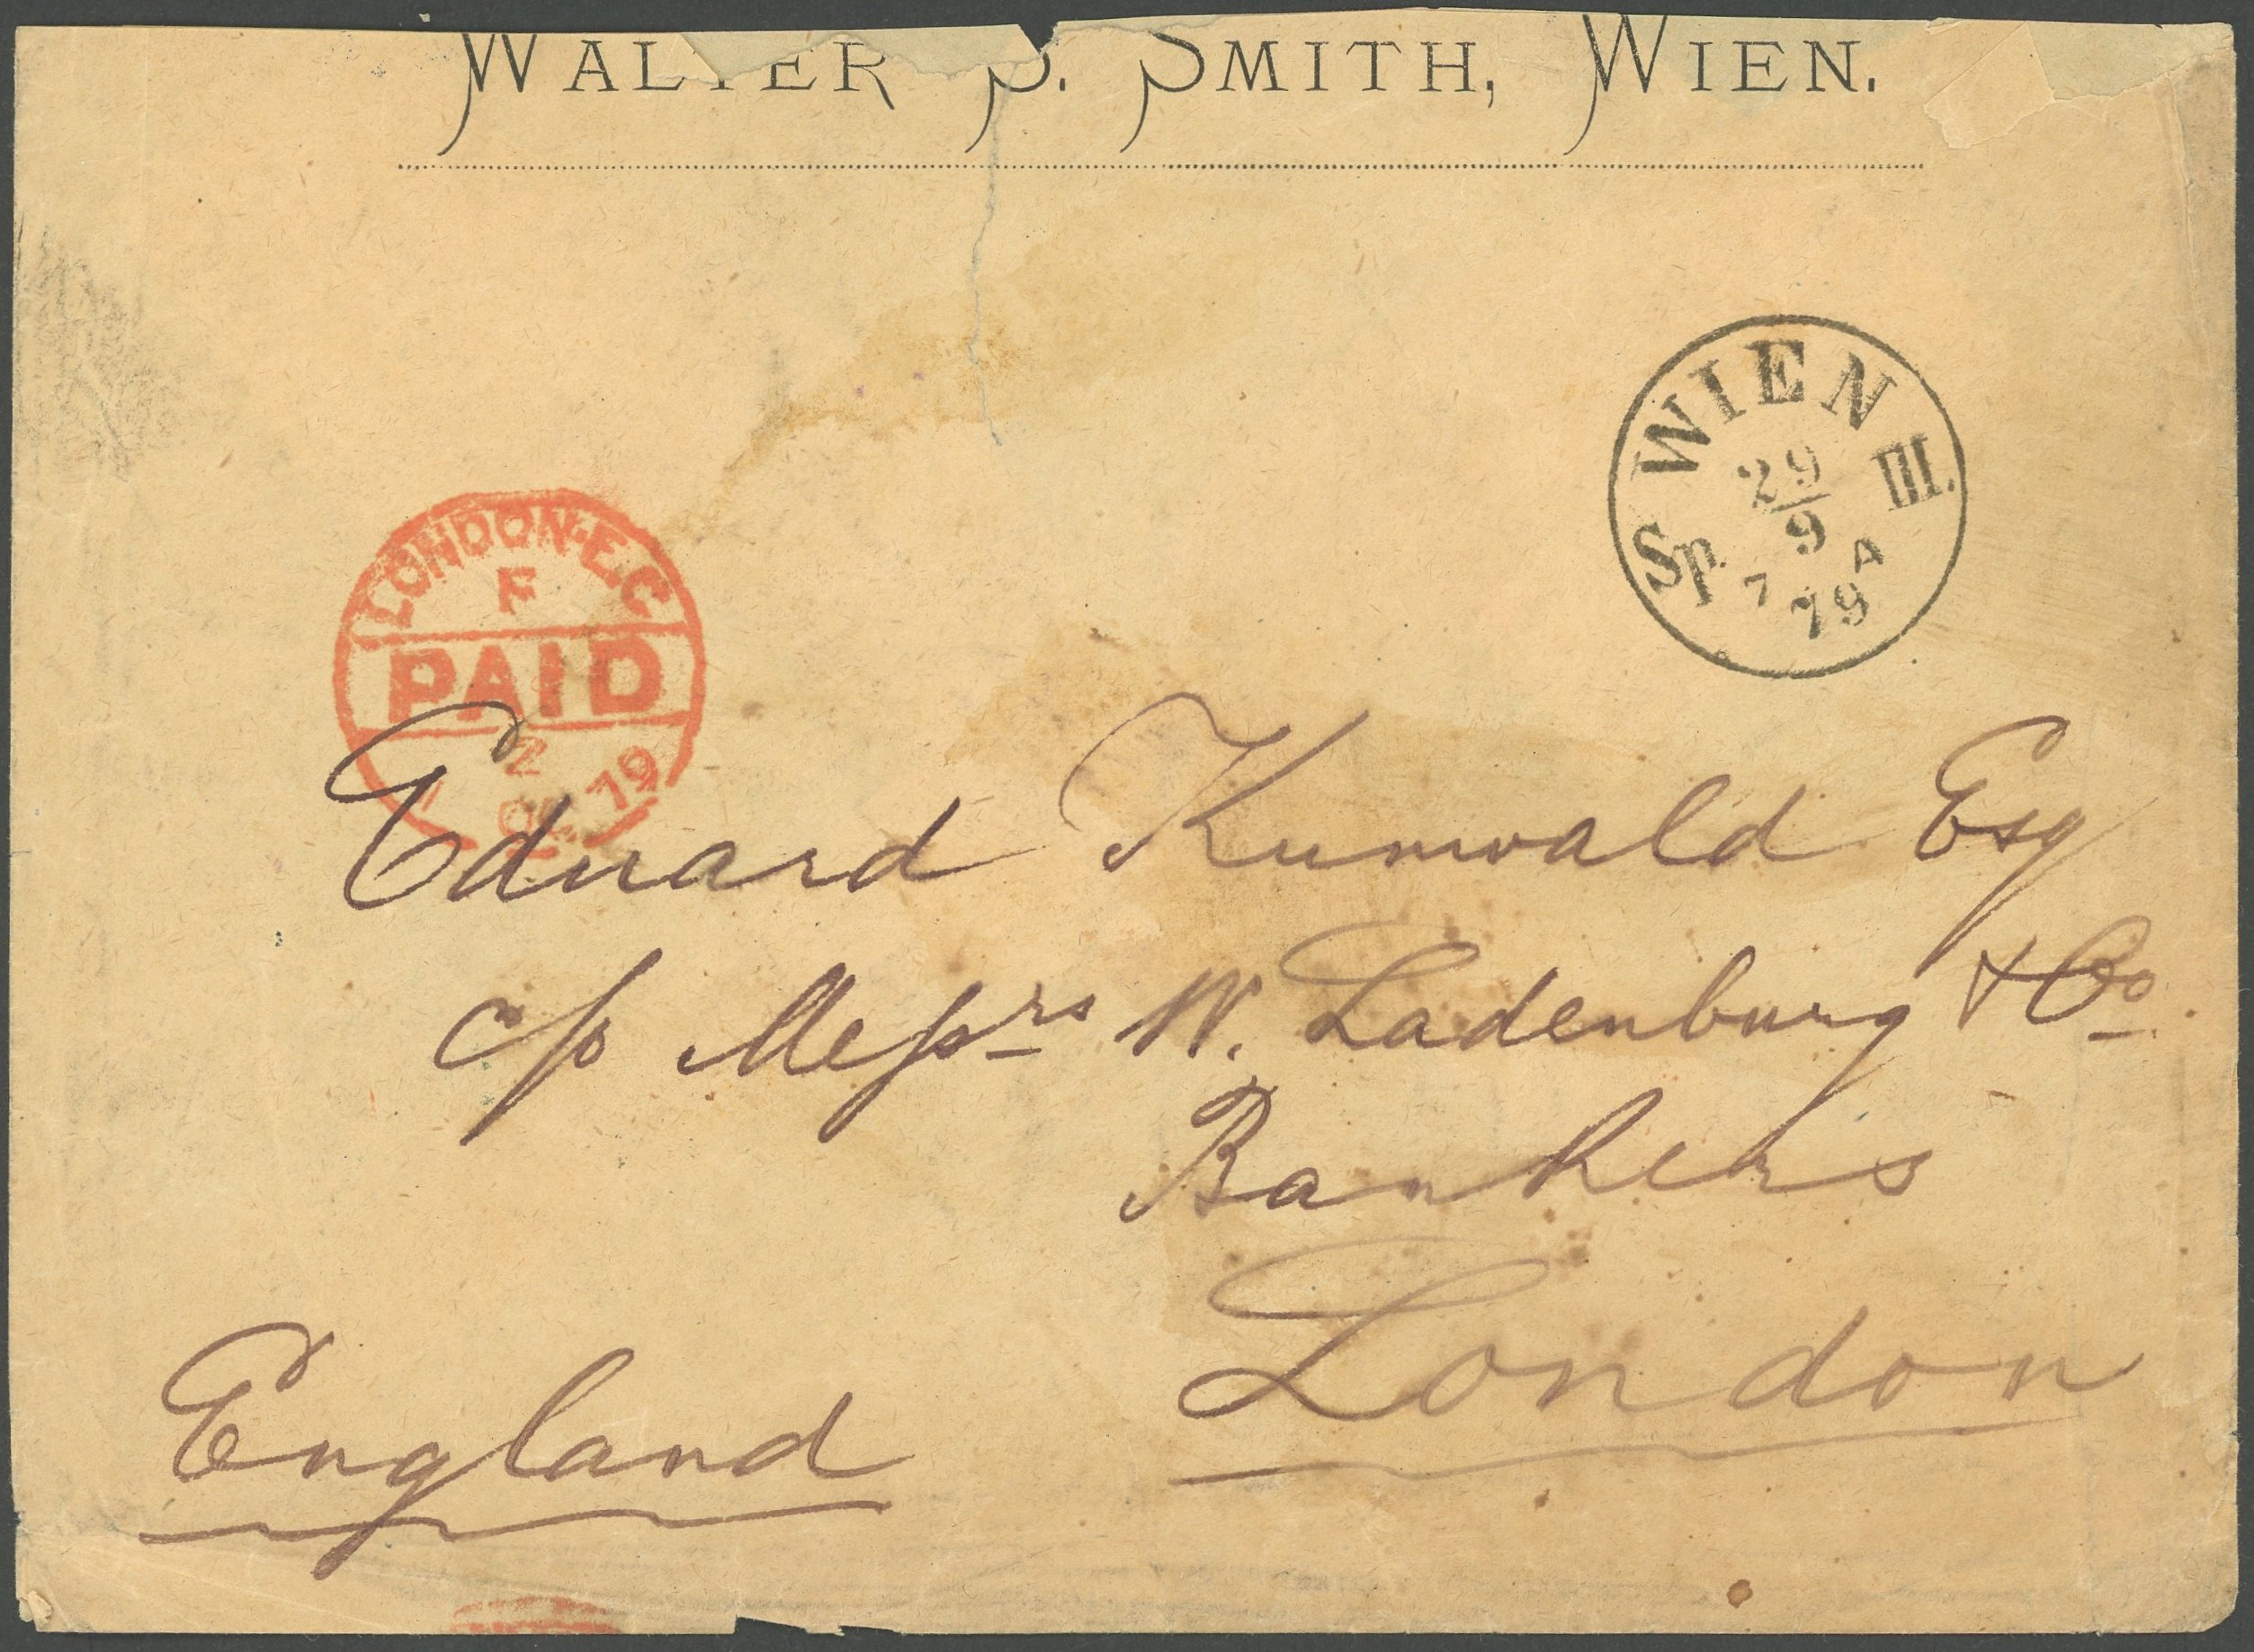 WALTER S. SMITH, WIEN.
WIEN III.
29
9
Sp. 7 A
79
LONDON·E.C
F
PAID
2
OC 79
Eduard Kunwald Esq
c/o Messrs W. Ladenburg & Co
Bankers
London
England